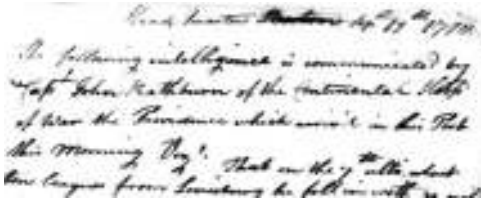 Head Quarters Boston
The following intelligence is communicated by
Capt John Rathburn of the Continental Sloop
of War the Providence which arriv'd in this Port
this Morning Viz. That on the 7th ulto about
ten leagues from Louisburg he fell in with